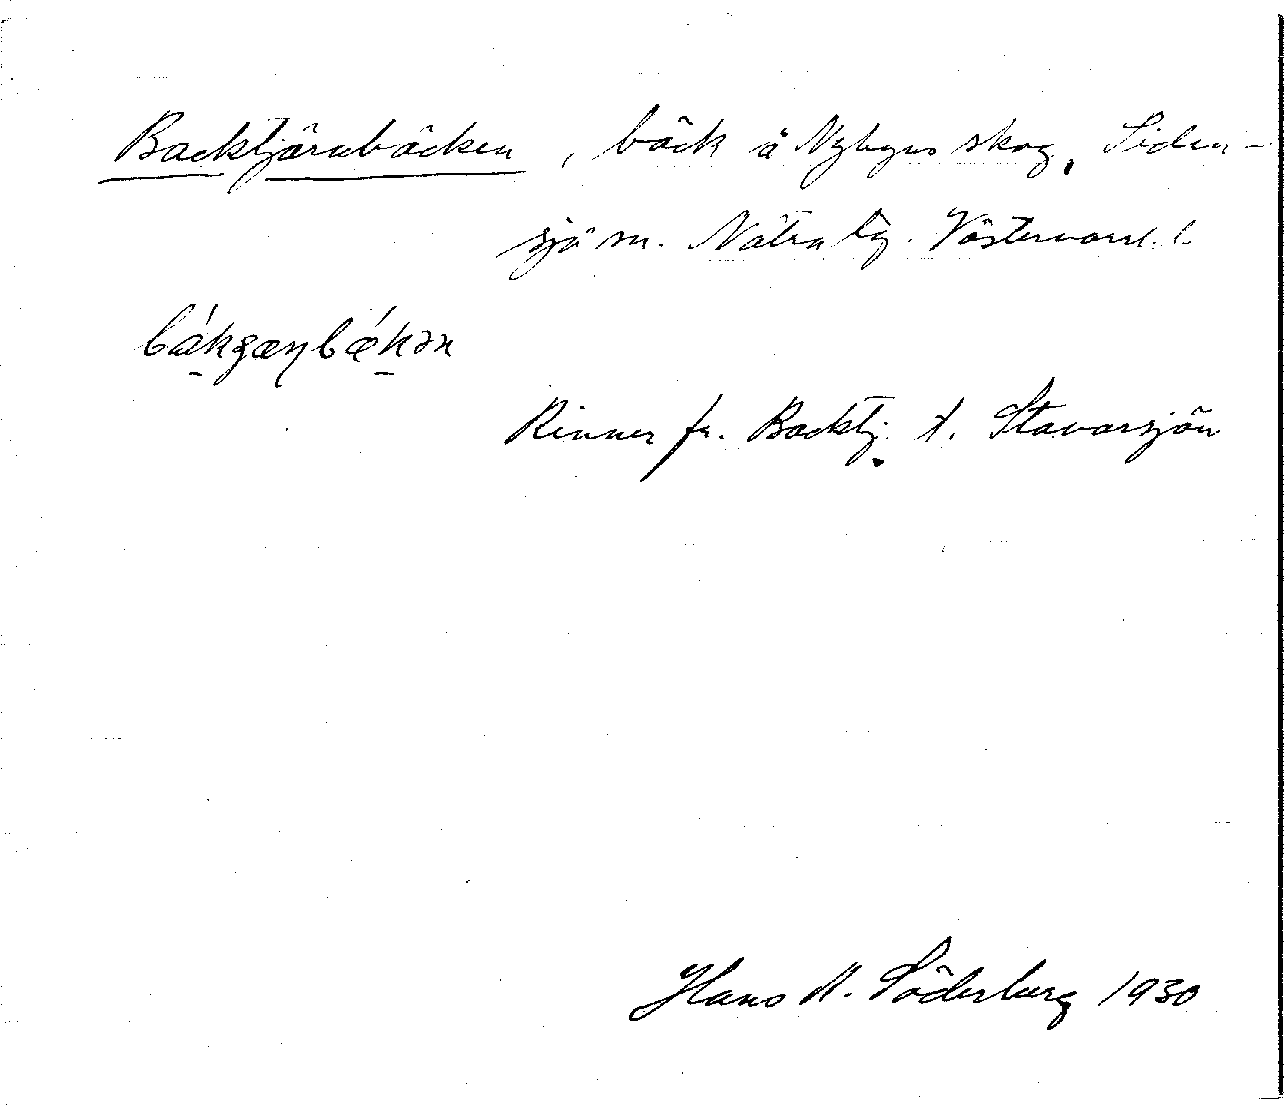 Backtjärnbäcken, bäck å Nybyns skog, Siden-
sjö sn. Nätra tg. Västernorrl. l.
bákʒæɳbǽkən
Rinner fr. Backtj. t. Stavarsjön
Hans A. Söderberg 1930